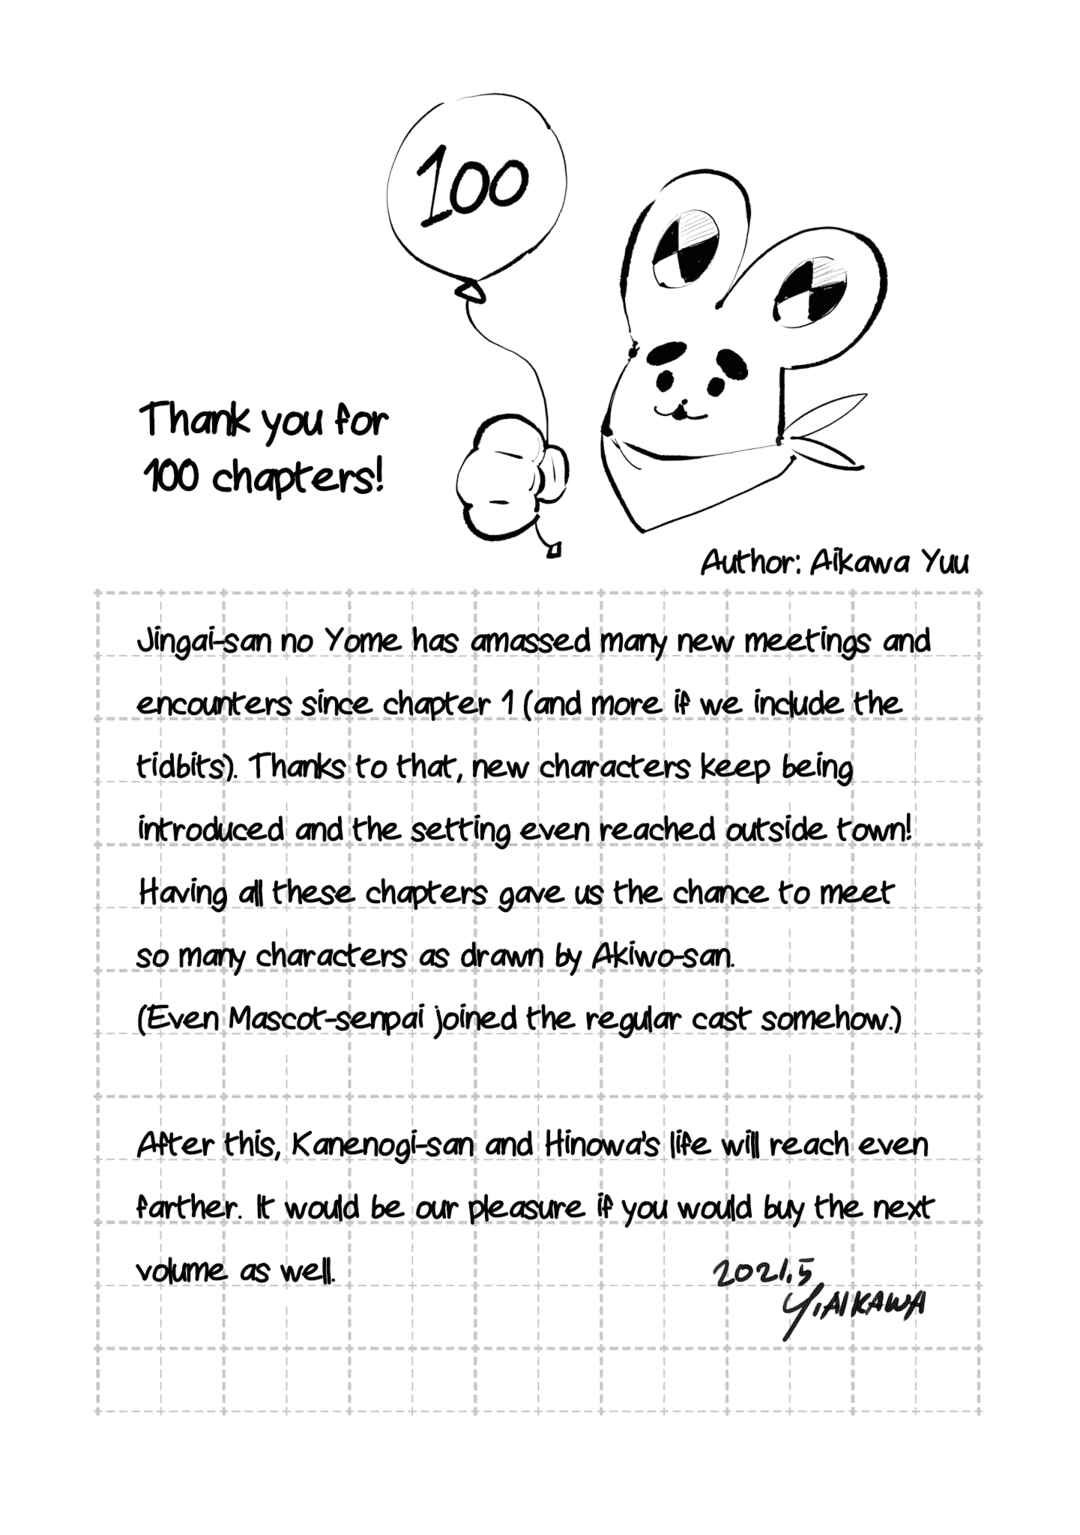 100
Thank you for
100 chapters!
Author: Aikawa Yuu
Jingai-san no Yome has amassed many new meetings and
encounters since chapter 1 (and more if we include the
tidbits). Thanks to that, new characters keep being
introduced and the setting even reached outside town!
Having all these chapters gave us the chance to meet
so many characters as drawn by Akiwo-san.
(Even Mascot-senpai joined the regular cast somehow.)
After this, Kanenogi-san and Hinowa's life will reach even
farther. It would be our pleasure if you would buy the next
volume as well.
2021.5
Y.AIKAWA